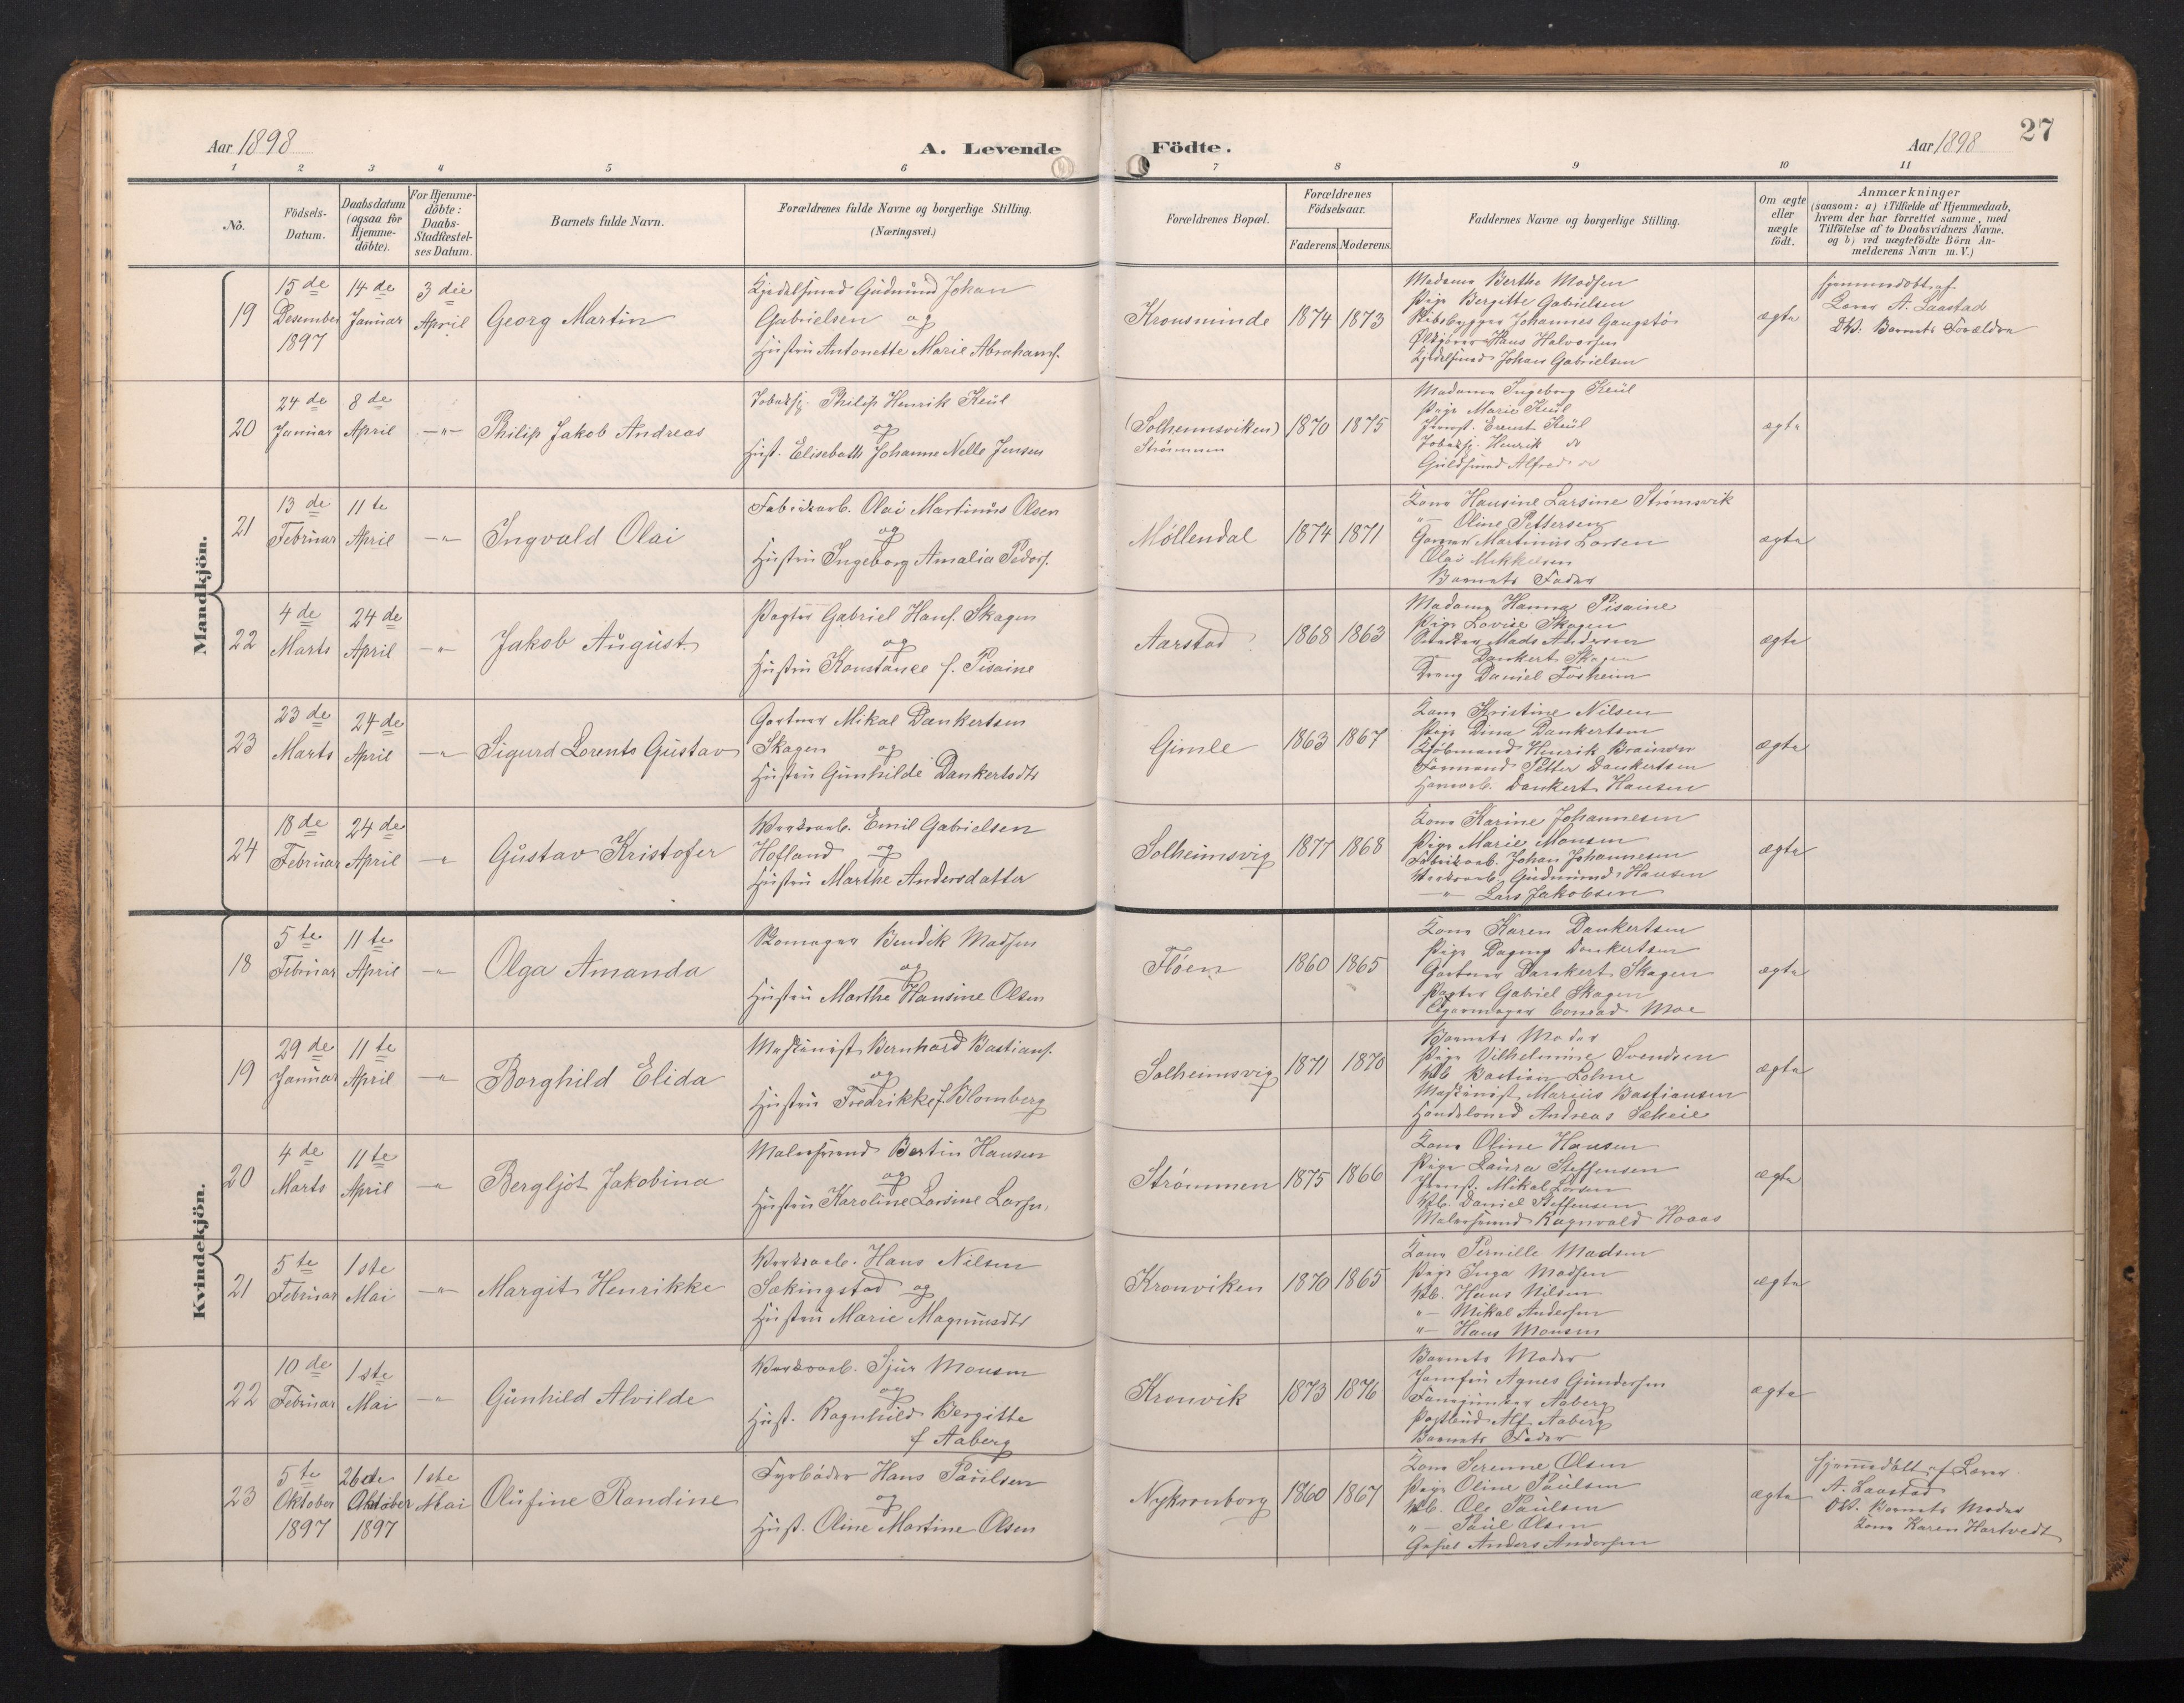 Aar 1898
A. Levende Födte.
Aar 1898
27
1 2 3 4 5 6 7 8 9 10 11
No.
Födsels-
Datum.
Daabsdatum
(ogsaa for
Hjemme-
döbte).
For Hjemme-
döbte:
Daabs-
Stadfæstel-
ses Datum.
Barnets fulde Navn.
Forældrenes fulde Navne og borgerlige Stilling.
(Næringsvei.)
Forældrenes Bopæl.
Forældrenes
Födselsaar.
Faderens. Moderens.
Faddernes Navne og borgerlige Stilling.
Om ægte
eller
uægte
födt.
Anmærkninger
(saasom: a) i Tilfælde af Hjemmedaab,
hvem der har forrettet samme, med
Tilföielse af to Daabsvidners Navne,
og b) ved uægtefödte Börn An-
melderens Navn m. V.)
Mandkjön.
19
15de
Desember
1897
14de
Januar
3die
April
Georg Martin
Kjedelsmed Gudmund Johan
Gabrielsen og
Hustru Antonette Marie Abrahams.
Kronsminde
1874 1873
Madame Berthe Madsen
Pige Bergitte Gabrielsen
Johannes Gaugstø
Hans Halvorsen
Kjedelsmed Johan Gabrielsen
ægte
Hjemmedøbt af
Lærer A. Laastad
DV. Barnets Forældre
20
24de
Januar
8de
April
-"-
Philip Jakob Andreas
Philip Henrik Keül
og
Hust. Elisebath Johanne Nelle Jensen
(Solheimsviken)
Strømmen
1870 1875
Madame Ingeborg Keül
Pige Marie Keül
Ernst Keül
Henrik do
Guldsmed Alfred do
ægte
21
13de
Februar
11te
April
-"-
Ingvald Olai
Fabrikarb. Olai Martinus Olsen
og
Hustru Ingeborg Amalia Peders.
Møllendal
1874 1871
Kone Hansine Larsine Strømsvik
"- Oline Pettersen
Garver Martinus Larsen
Olai Mikkelsen
Barnets Fader
ægte
22
4de
Marts
24de
April
-"-
Jakob August
Pagter Gabriel Hans. Skagen
og
Hustru Konstance f. Pisaine
Aarstad ?
1868 1863
Madame Hanna Pisaine
Pige Lovise Skagen
Mads Andersen
Dankert Skagen
Dreng Daniel Fosheim
ægte
23
23de
Marts
24de
April
-"-
Sigurd Lorents Gustav
Gartner Mikal Dankertsen
Skagen og
Hustru Gunhilde Dankertsdtr
Gimle
1863 1867
Kone Kristine Nilsen
Pige Dina Dankertsen
Kjøbmand Henrik
Formand Petter Dankertsen
Dankert Hansen
ægte
24
18de
Februar
24de
April
-"-
Gustav Kristofer
Værksarb. Emil Gabrielsen
Hofland og
Hustru Marthe Andersdatter
Solheimsvig
1877 1868
Kone Karine Johannesen
Pige Marie Monsen
Fabrikarb. Johan Johannesen
Værksarb. Gudmund Hansen
-"- Lars Jakobsen
ægte
Kvindekjön.
18
5te
Februar
11te
April
-"-
Olga Amanda
Skomager Bendik Madsen
og
Hustru Marthe Hansine Olsen
Fløen
1860 1865
Kone Karen Dankertsen
Pige Dagny Dankertsen
Gartner Dankert Skagen
Pagter Gabriel Skagen
Conrad Moe
ægte
19
29de
Januar
11te
April
-"-
Borghild Elida
Maskinist Bernhard Bastians.
og
Hustru Fredrikke f. Blomberg
Solheimsvig
1871 1870
Barnets Moder
Pige Vilhelmine Svendsen
Vb. Bastian Lohne
Maskinist Marius Bastiansen
Handelsmd Andreas
ægte
20
4de
Marts
11te
April
-"-
Bergljot Jakobina
Malersvend Bertin Hansen
og
Hustru Karoline Larsine Larsen.
Strømmen
1875 1866
Kone Oline Hansen
Pige Laura Steffensen
Mikal Larsen
Vb. Daniel Steffensen
Malersvend Ragnvald Haaas
ægte
21
5te
Februar
1ste
Mai
-"-
Margit Henrikke
Værksarb. Hans Nilsen
Sækingstad og
Hustru Marie Magnusdtr
Kronviken
1870 1865
Kone Pernille Madsen
Pige Inga Madsen
Vb. Hans Nilsen
"- Mikal Andersen
"- Hans Monsen
ægte
22
10de
Februar
1ste
Mai
-"-
Gunhild Alvilde
Værksarb. Sjur Monsen
og
Hust. Ragnhild Bergitte
f Aaberg
Kronvik
1873 1876
Barnets Moder
Jomfru Agnes Gundersen
Aaberg
Postbud Alf Aaberg
Barnets Fader
ægte
23
5te
Oktober
1897
26de
Oktober
1897
1ste
Mai
Olufine Randine
Fyrbøder Hans Paulsen
og
Hust. Oline Martine Olsen
Nykronborg
1860 1867
Kone Serenne Olsen
Pige Oline Paulsen
Vb. Ole Paulsen
"- Paul Olsen
Anders Andersen
ægte
Hjemmedøbt af Lærer
A. Laastad
DV. Barnets Moder
Kone Karen Hartvedt